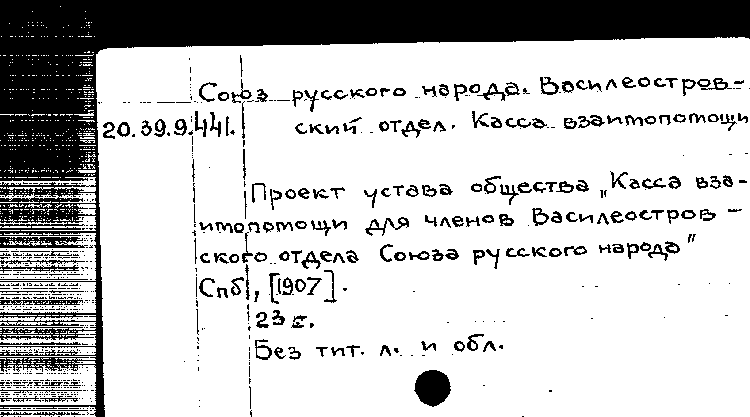 Союз русского народа. Василеостров-
20.39.9.441. ский отдел. Касса взаимопомощи
Проект устава общества „Касса вза-
имопомощи для членов Василеостров-
ского отдела Союза русского народа"
Спб, [1907].
23 с.
Без тит. л. и обл.